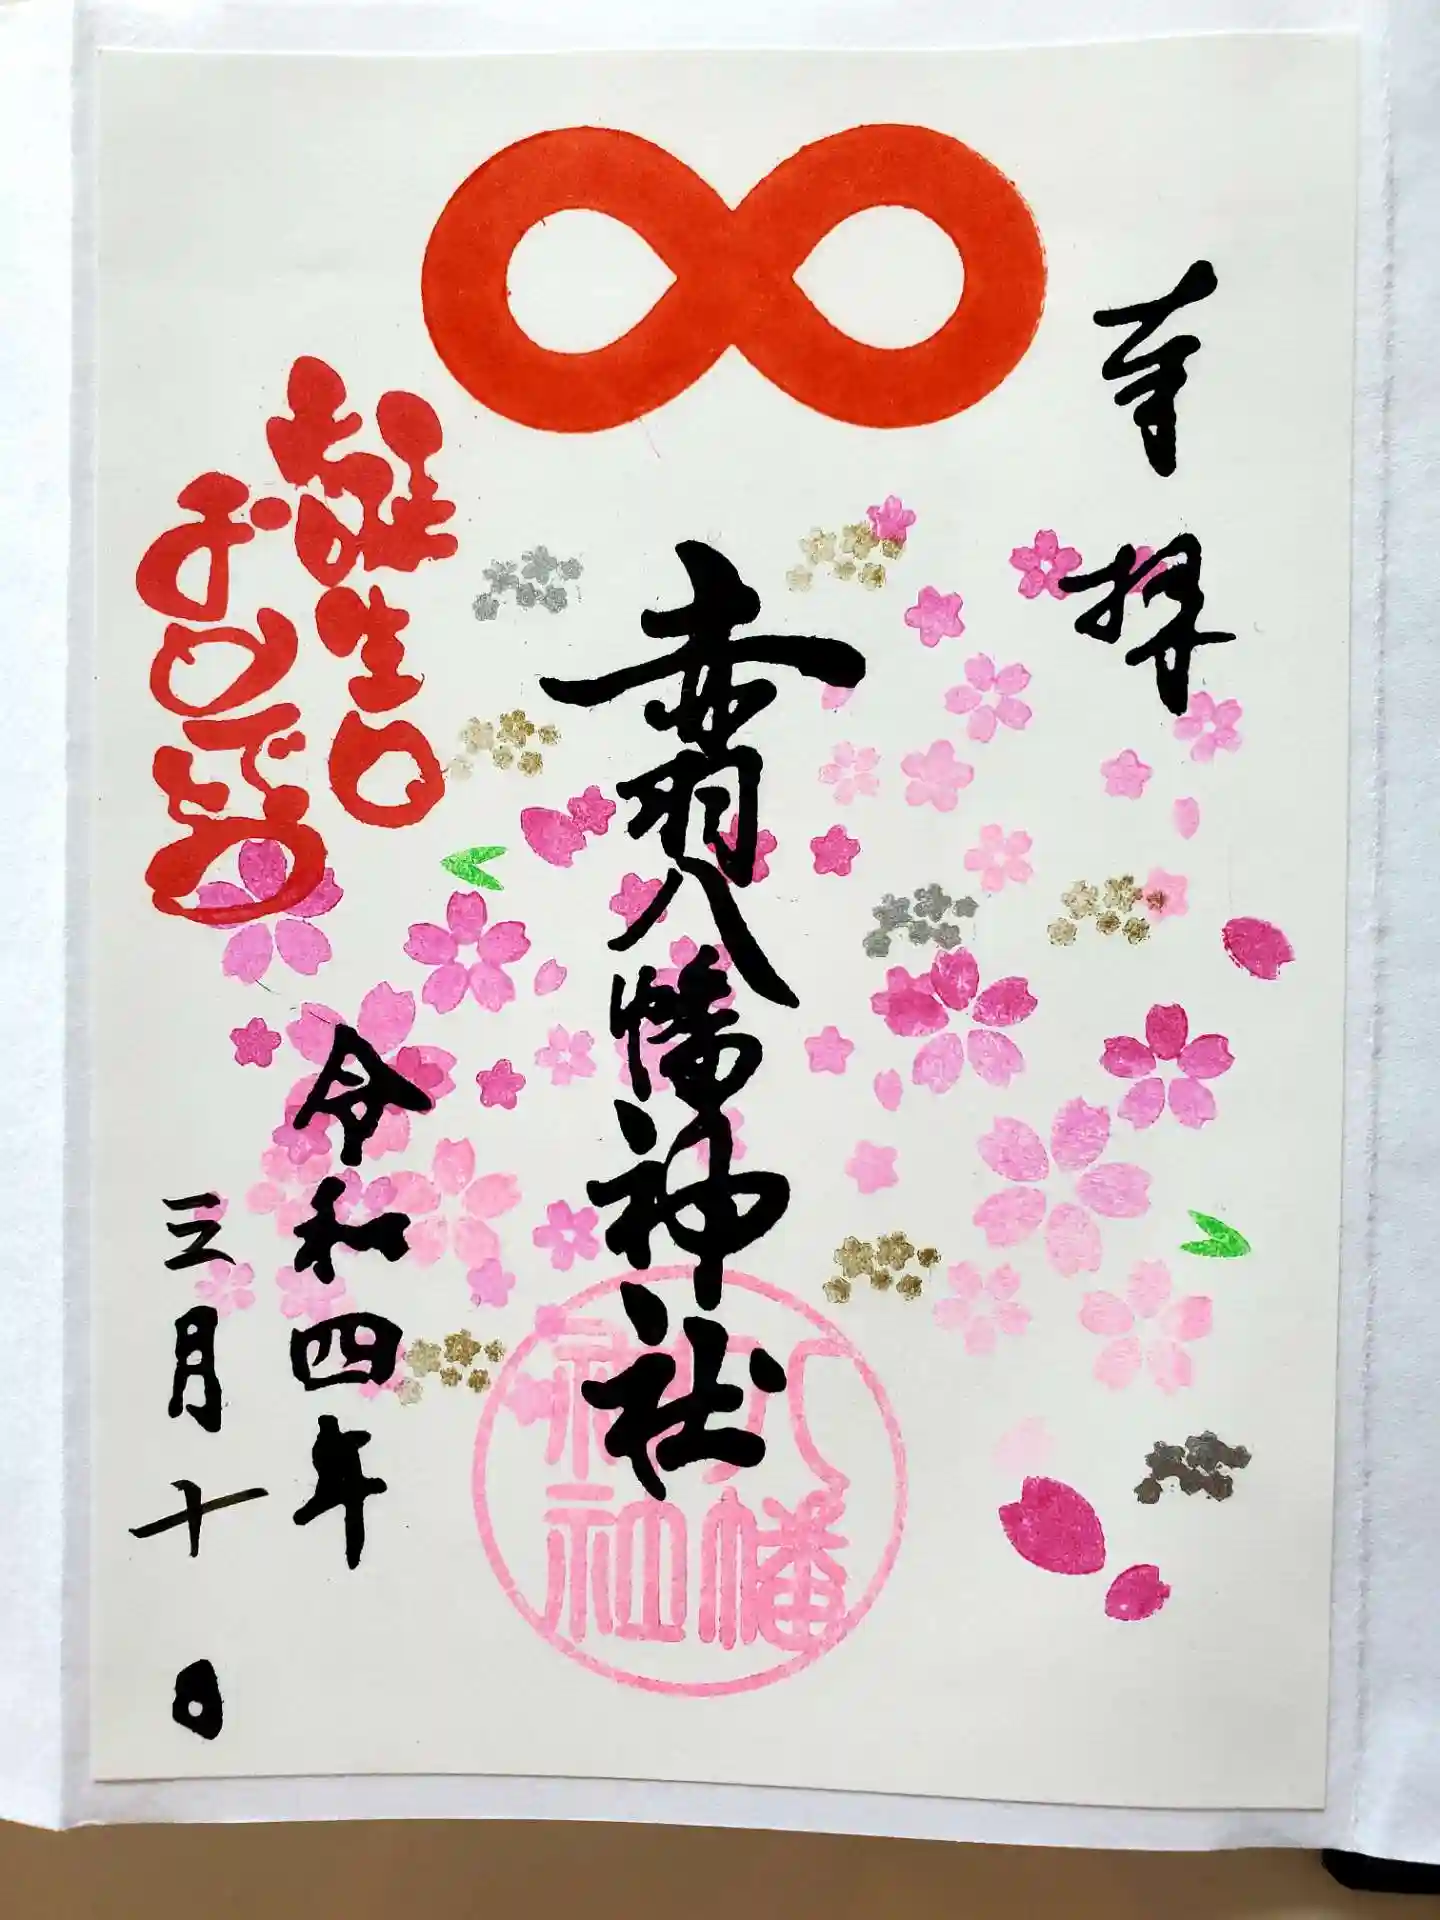 奉拝
赤羽八幡神社
八幡神社
誕生日
おめでとう
令和四年
三月十日